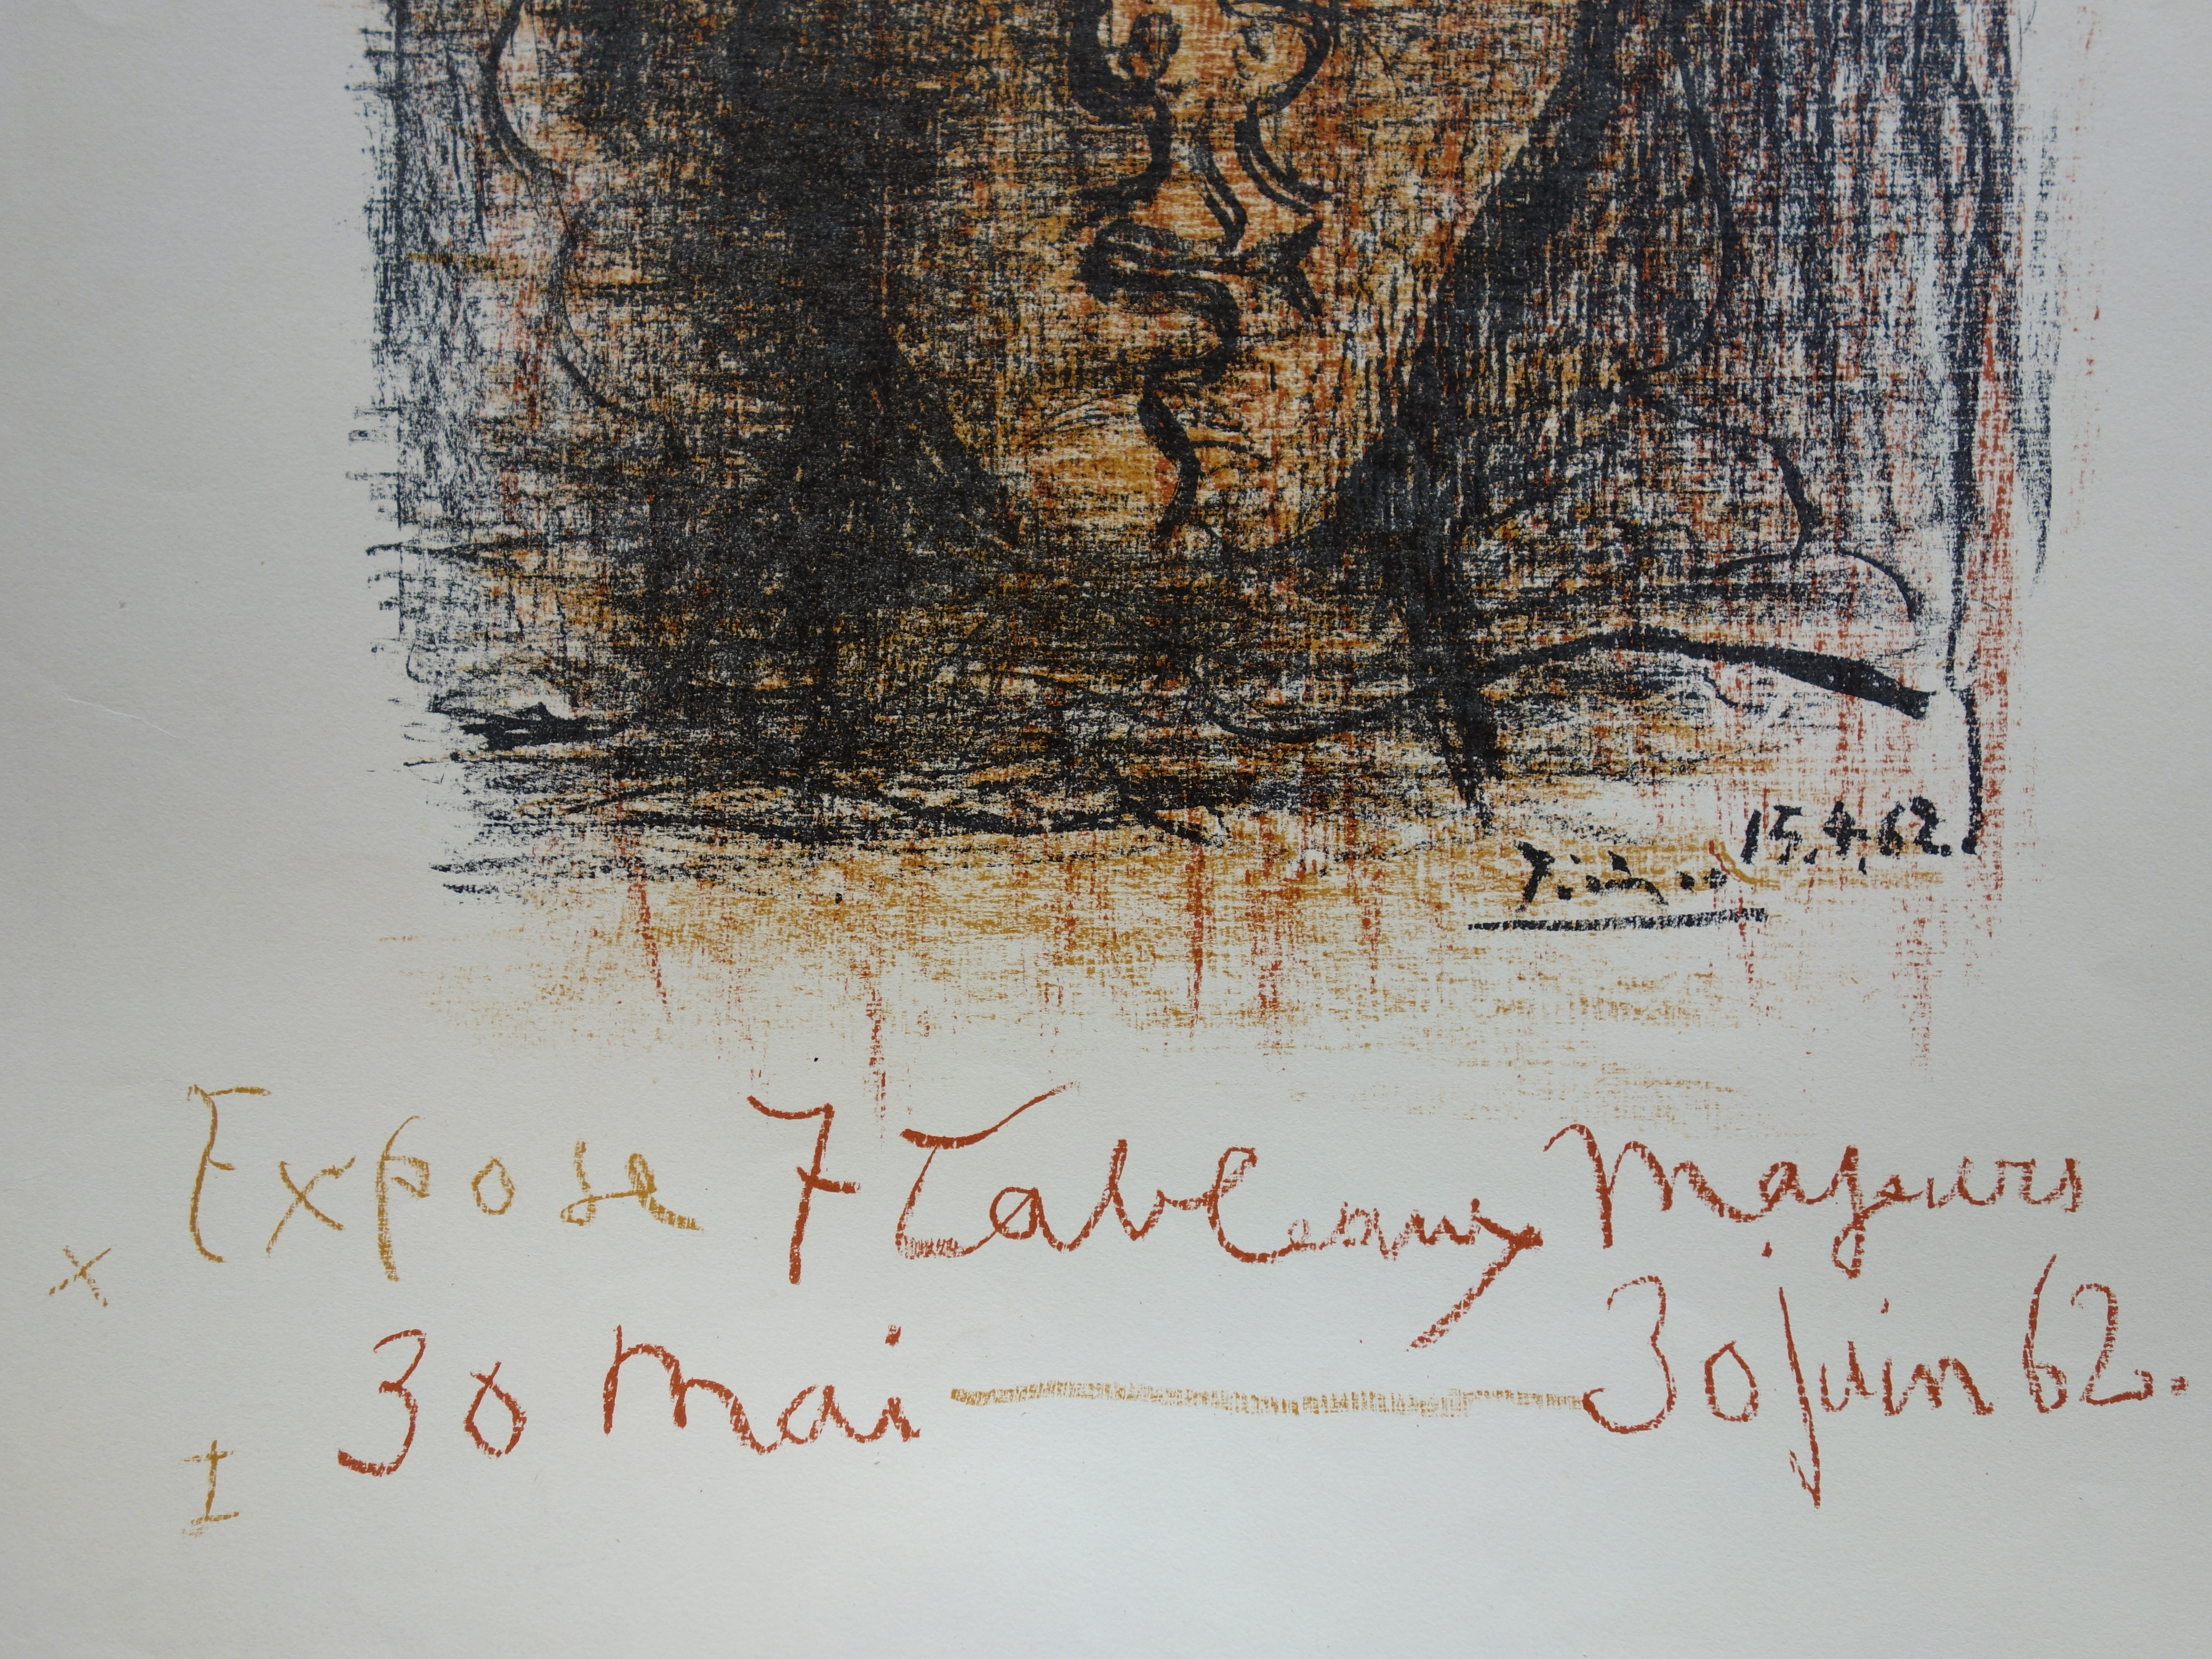 15.4.62.
Expose 7 Tableaux Majeurs
x
30 Mai — 30 Juin 62.
I